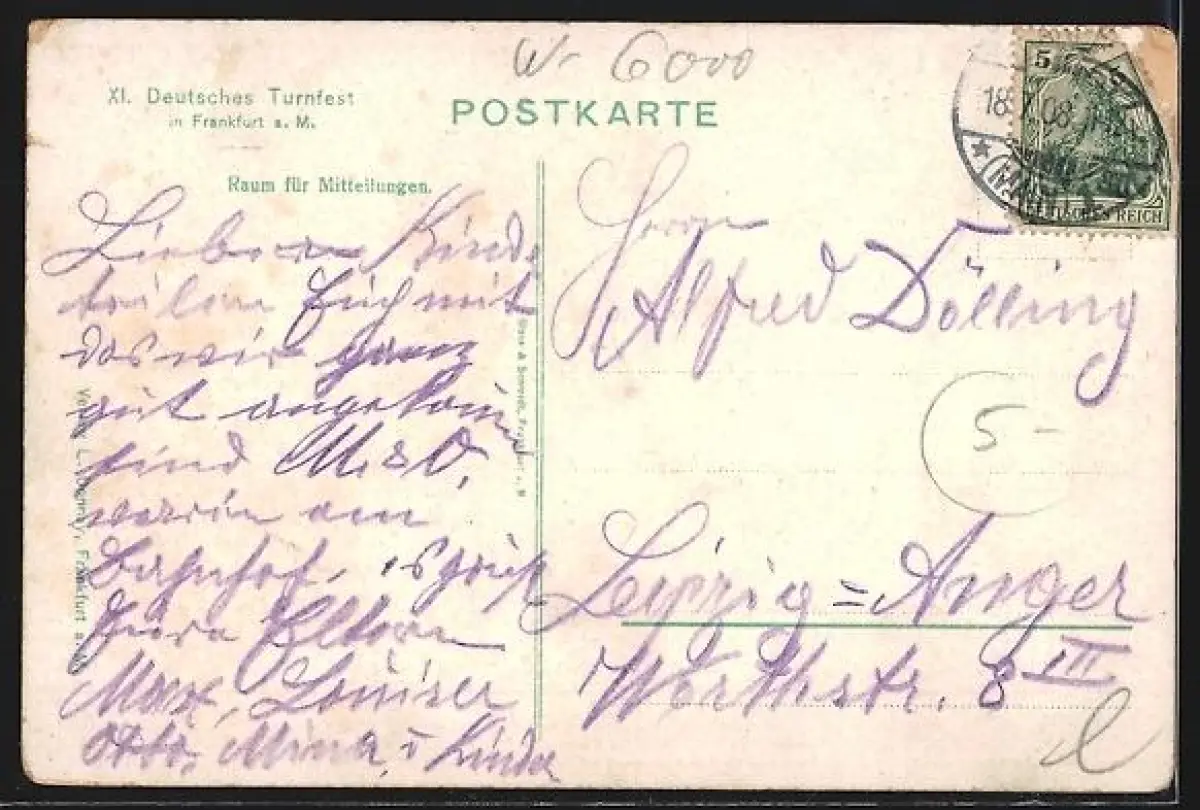 W- 6000
XI. Deutsches Turnfest
in Frankfurt a. M.
POSTKARTE
Raum für Mitteilungen.
5
18. 08
DEUTSCHES REICH
Liebe Kinder
teilen Euch mit
das wir ganz
gut angekom
sind M. & O.
warin am
Bahnhof. es grüßt
Eure Eltern
Max, Louise
Otto, Mina, u Kinder
Herrn
Alfred Dölling
5-
Leipzig=Anger
Wörthstr. 8 III
Frankfurt a. M
Frankfurt a. M